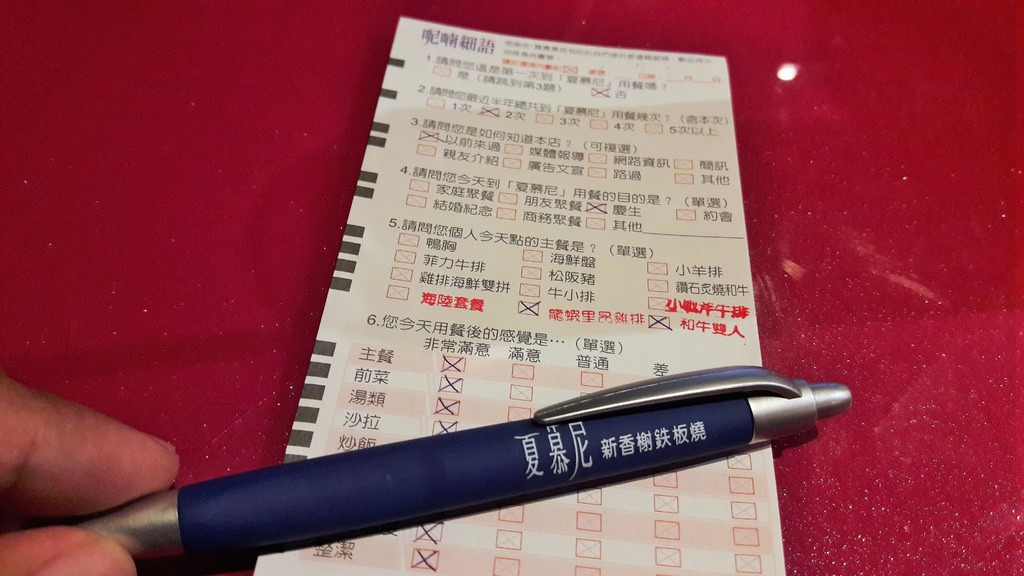 呢喃細語
1.請問您這是第一次到「夏慕尼」用餐嗎？
是（請跳到第3題） 否
2.請問您最近半年總共到「夏慕尼」用餐幾次？（含本次）
1次 2次 3次 4次 5次以上
3.請問您是如何知道本店？（可複選）
以前來過 媒體報導 網路資訊 簡訊
親友介紹 廣告文宣 路過 其他
4.請問您今天到「夏慕尼」用餐的目的是？（單選）
家庭聚餐 朋友聚餐 慶生 約會
結婚紀念 商務聚餐 其他
5.請問您個人今天點的主餐是？（單選）
鴨胸 海鮮盤 小羊排
菲力牛排 松阪豬 鑽石炙燒和牛
雞排海鮮雙拼 牛小排
海陸套餐 龍蝦里昂雞排 和牛雙人
6.您今天用餐後的感覺是…（單選）
非常滿意 滿意 普通 差
主餐
前菜
湯類
沙拉
炒飯
夏慕尼 新香榭鉄板燒
整潔